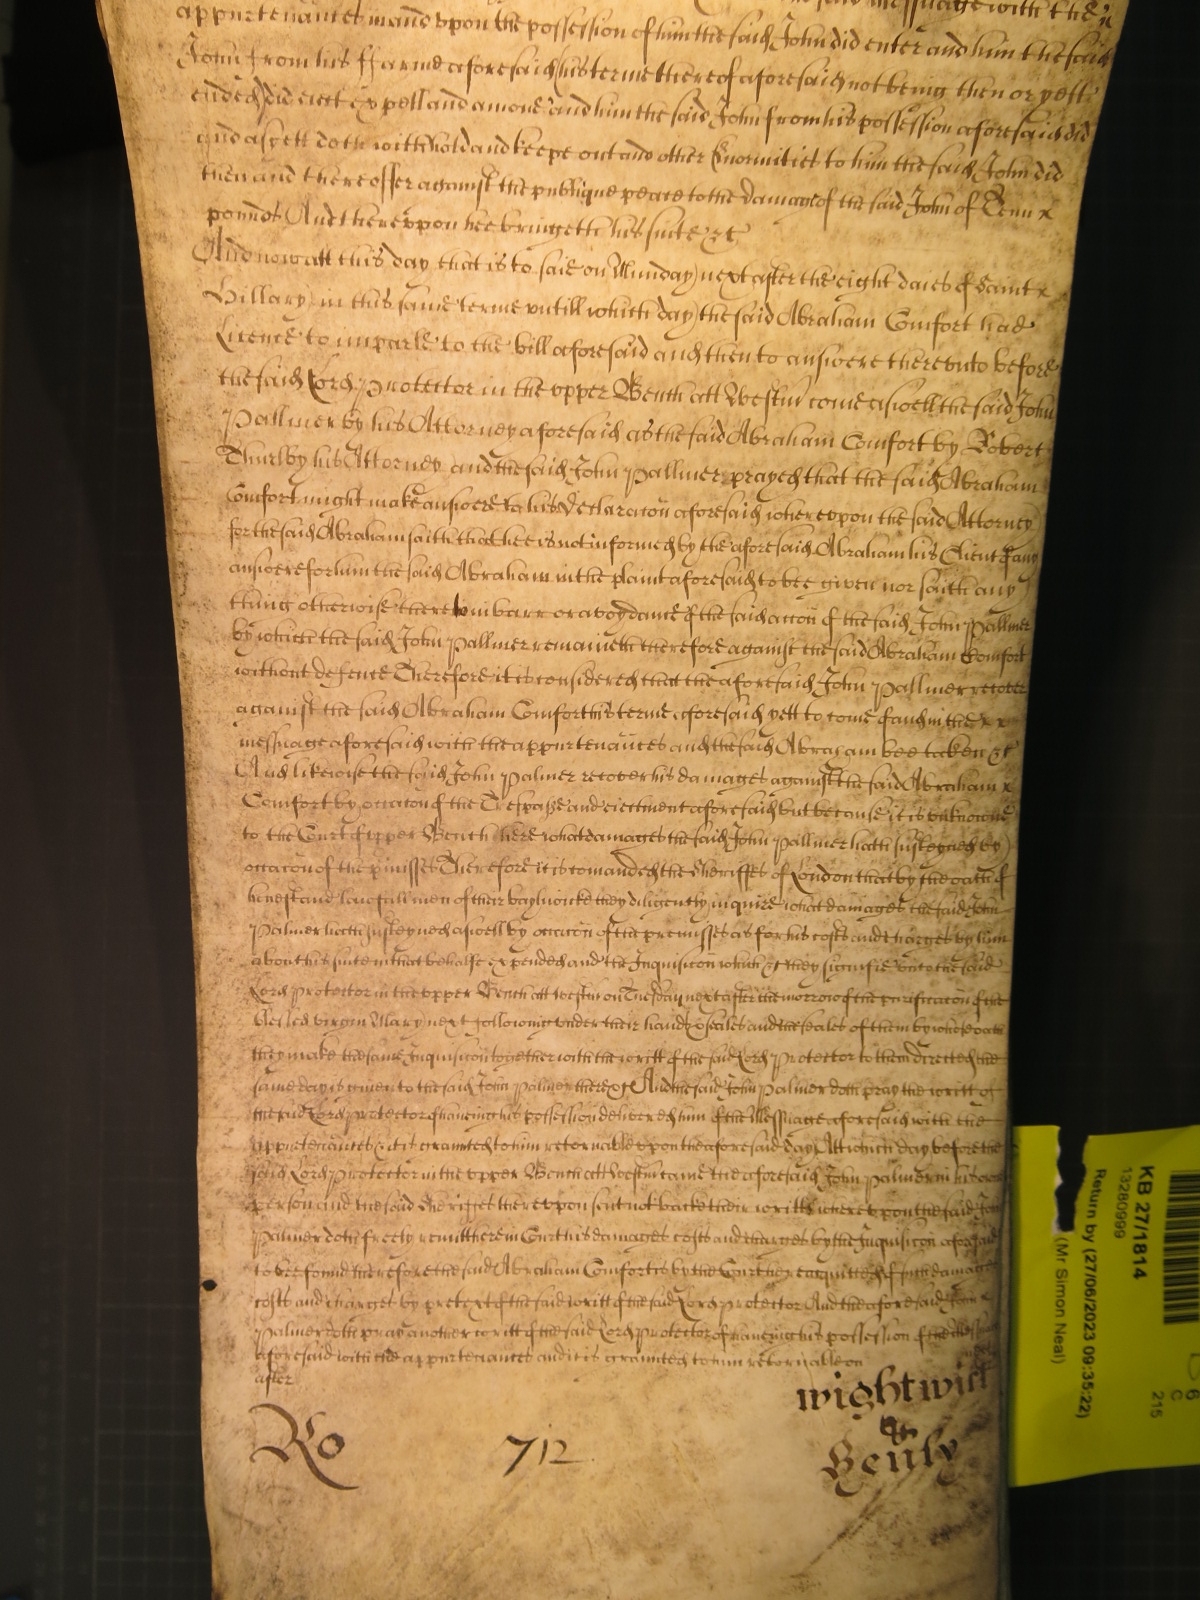 said messuage with the
appurtenances in and upon the possession of him the said John did enter and him the said
John from his ffarme aforesaid his terme thereof aforesaid not being then or yett
ended did eiect expell and amove and him the said John from his possession aforesaid did
and as yett doth withhold and keepe out and other Enormities to him the said John did
then and there offer against the publique peace to the damage of the said John of Tenn x
pounds And thereupon hee bringeth his suite &c
And now att this day that is to saie on Munday next after the eight daies of Saint x
Hillary in this same terme untill which day the said Abraham Comfort had
Licence to imparle to the bill aforesaid and then to answere thereunto before
the said Lord Protector in the upper Bench att Westm come aswell the said John
Pallmer by his Attorney aforesaid as the said Abraham Comfort by Robert
Thurlby his Attorney and the said John Pallmer prayed that the said Abraham
Comfort might make answere to his declaracon aforesaid whereupon the said Attorney
for the said Abraham saith that hee is not informed by the aforesaid Abraham his Client of any
answere for him the said Abraham in the plaint aforesaid to bee given nor saith any
thing otherwise there in barr or avoydance of the said accon of the said John Pallmer
by which the said John Pallmer remaineth therefore against the said Abraham Comfort
without defence Therefore it is considered that the aforesaid John Pallmer recover
against the said Abraham Comfort his terme aforesaid yett to come of and in the x x
messuage aforesaid with the appurtenances and the said Abraham bee taken &c
And likewise the said John Palmer recover his damages against the said Abraham x
Comfort by occacon of the Trespasse and eiectment aforesaid but because it is unknowne
to the Court of upper Bench here what damages the said John Pallmer hath susteyned by
occacon of the premisses Therefore it is comanded the Sheriffes of London that by the oath of
honest and lawfull men of their bayliwicke they diligently inquire what damages the said John
Palmer hath susteyned aswell by occacon of the premisses as for his costs and charges by him
about his suite in that behalfe expended and the Inquisicon which &c they signifie unto the said
Lord Protector in the upper Bench att Westm on Tuesday next after the morrow of the purificacon of the
blessed virgin Mary next following under their hands & seales and the seales of them by whose oath
they make the same Inquisicon together with the writt of the said Lord Protector to them directed the
same day is given to the said John Palmer there &c And the said John Palmer doth pray the writt of
the said Lord Protector of haveing his possession delivered him of the Messuage aforesaid with the
appurtenances & it is graunted to him retornable upon the aforesaid day Att which day before the
said Lord Protector in the upper Bench att Westm came the aforesaid John Palmer in his owne
person and the said Sheriffes thereupon sent not backe their writts whereupon the said John
Palmer doth freely remitt here in Court his damages costs and charges by the Inquisicon aforesaid
to bee found therefore the said Abraham Comfort is by the Court here acquitted of such damages
costs and charges by pretext of the said writt of the said Lord Protector And the aforesaid John x
Palmer doth pray another writt of the said Lord Protector of haveing his possession of the
aforesaid with the appurtenances and it is graunted to him retornable on
after
wightwick
&
Ro 712
KB 27/1814
13280999
Return by (27/06/2023 09:35:22)
(Mr Simon Neal)
6
C
215